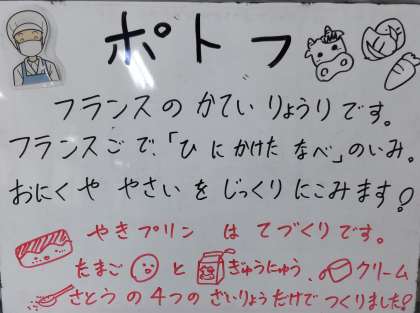 ポトフ
フランスの かてい りょうり です。
フランスご で、「ひ に かけた なべ」のいみ。
おにくや やさい を じっくり にこみます!
やきプリン は てづくり です。
たまご と ぎゅうにゅう、クリーム
さとう の 4つの ざいりょう だけで つくりました!